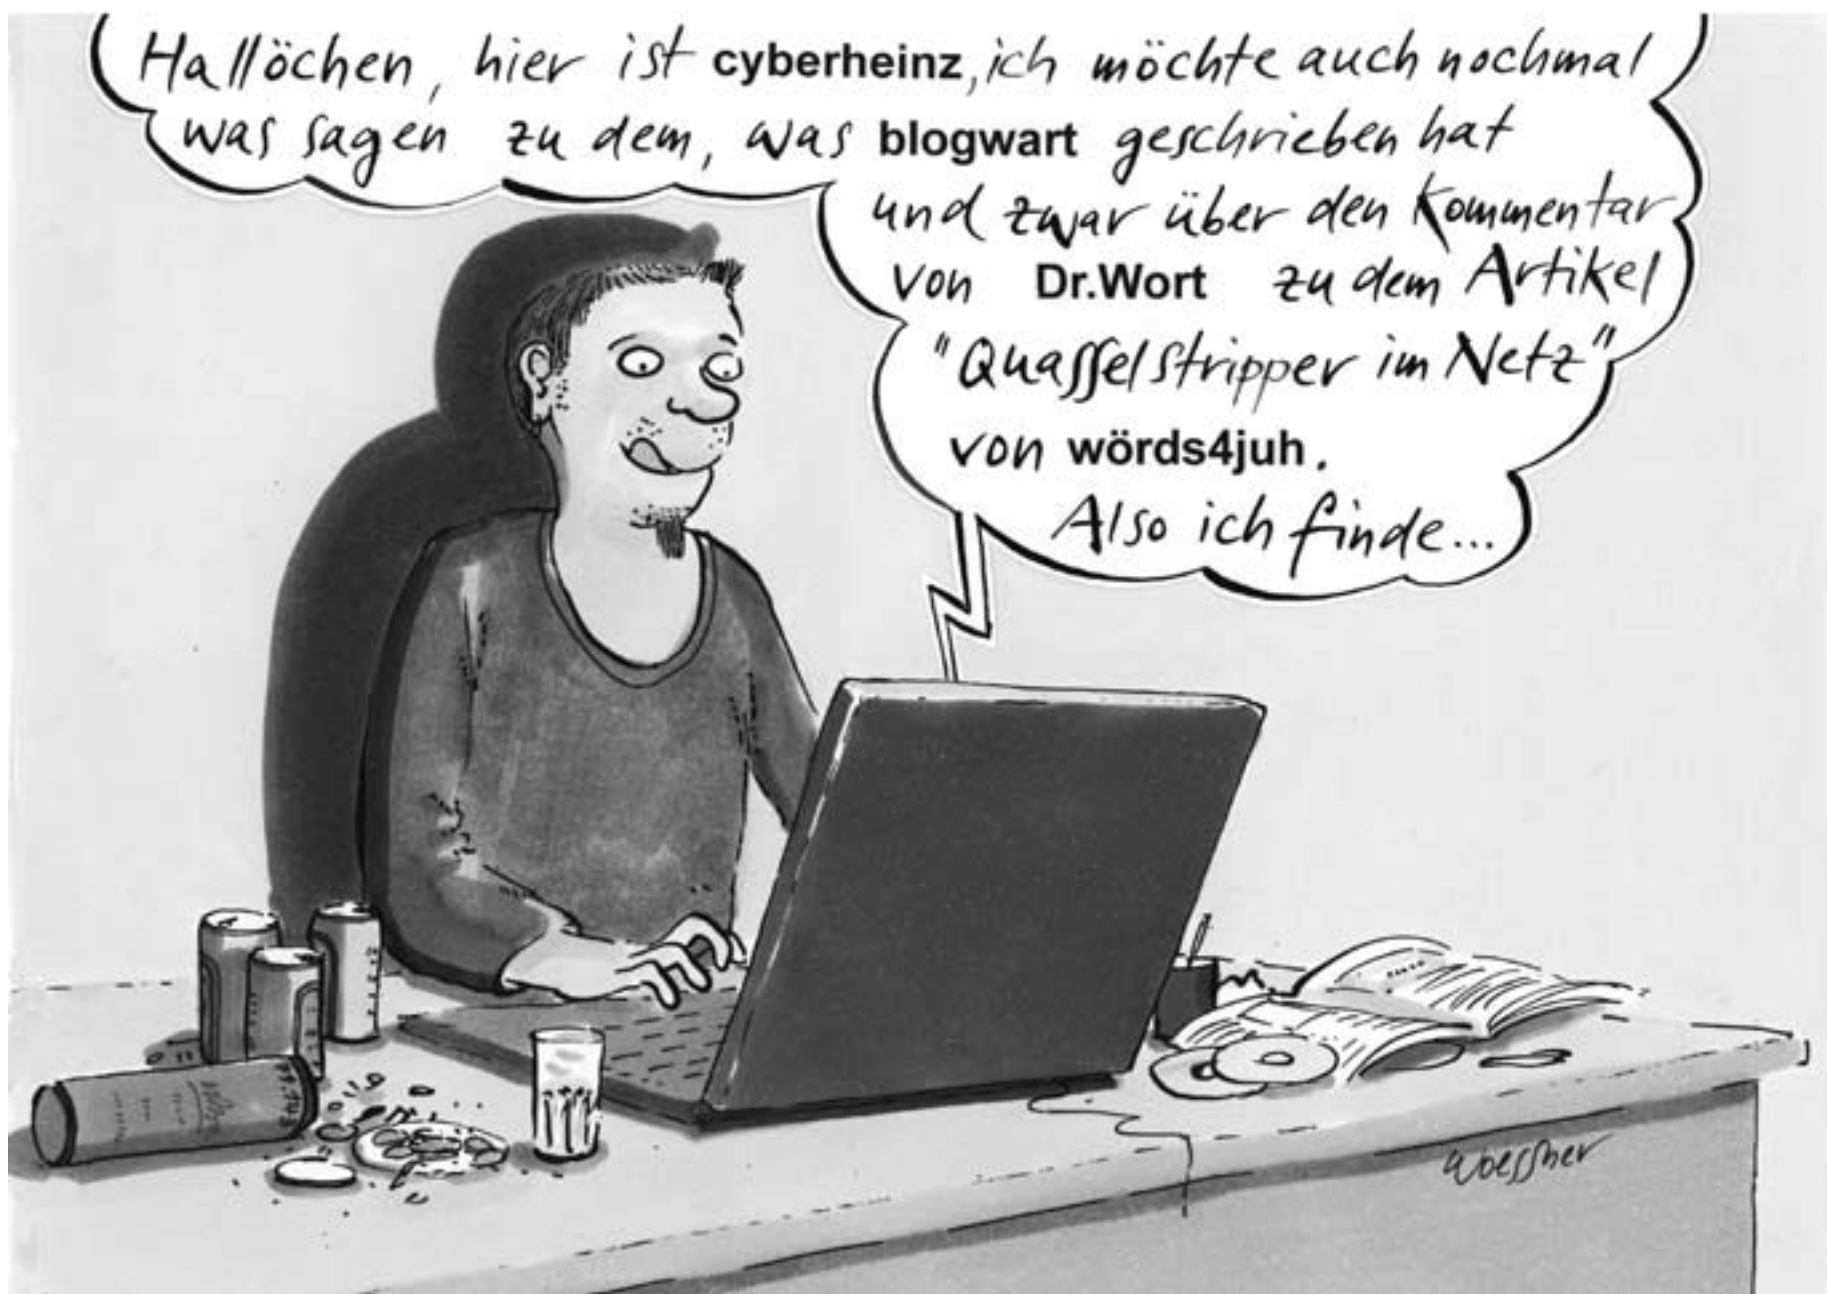 Hallöchen, hier ist cyberheinz, ich möchte auch nochmal
was sagen zu dem, was blogwart geschrieben hat
und zwar über den Kommentar
von Dr.Wort zu dem Artikel
"Quasselstripper im Netz"
von wörds4juh.
Also ich finde...
Woessner